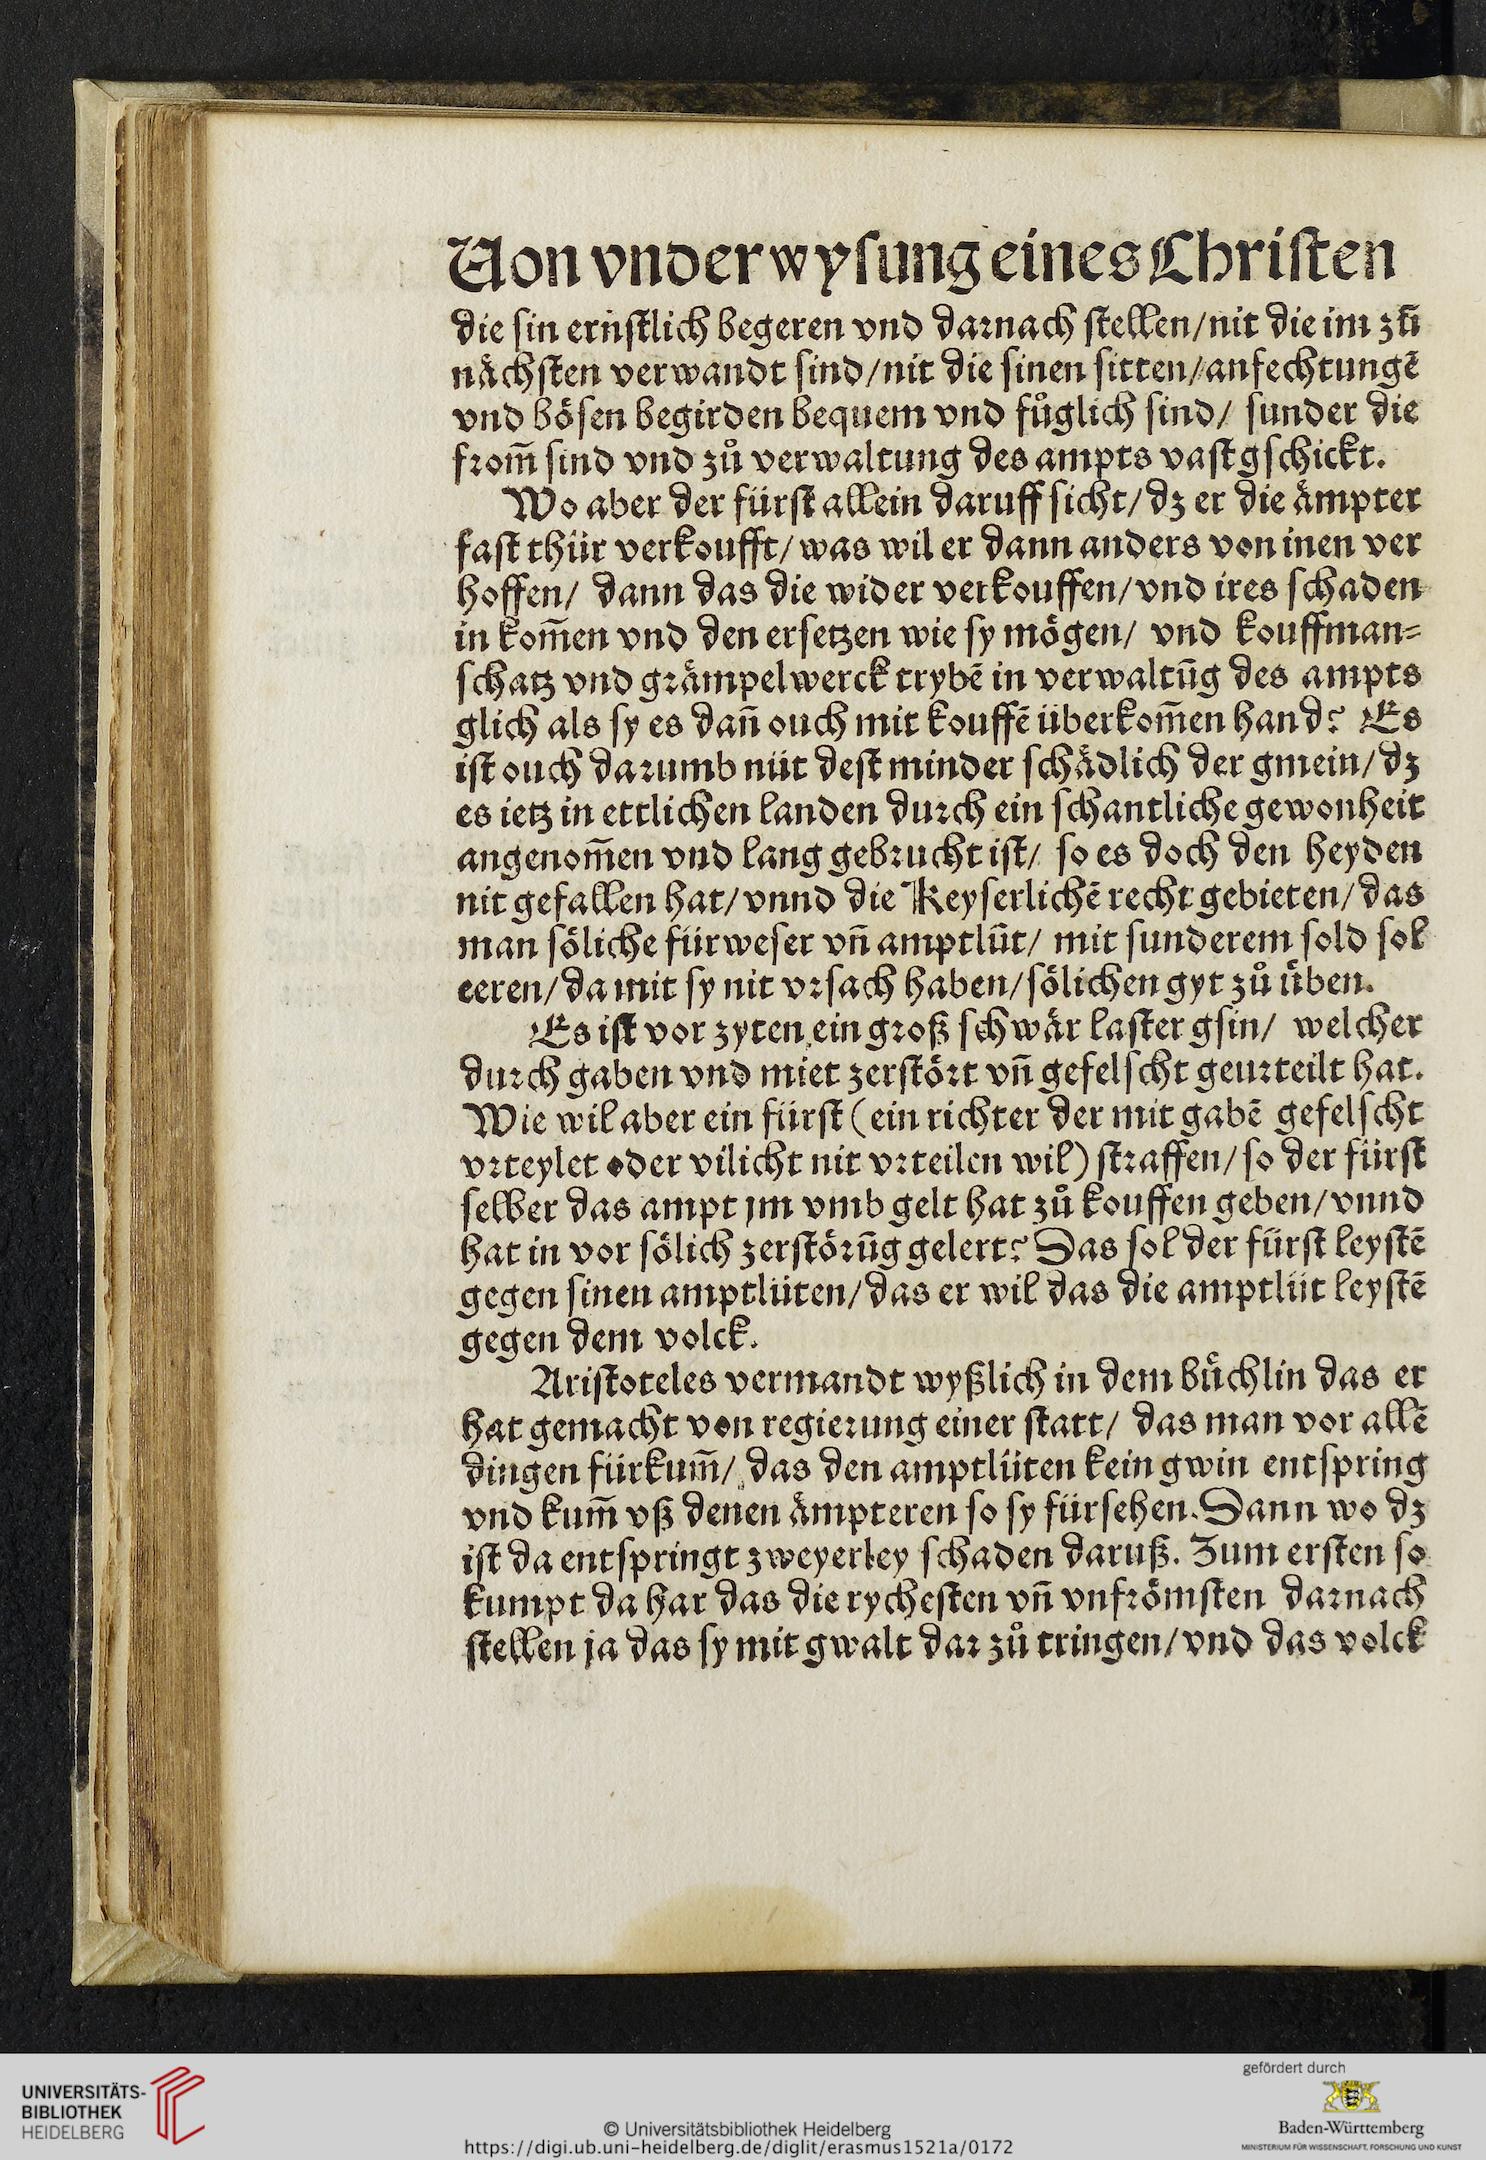 Von vnderwysung eines Christen
die sin ernstlich begeren vnd darnach stellen/nit die im zů
nächsten verwandt sind/nit die sinen sitten/anfechtungē
vnd bösen begirden bequem vnd fůglich sind/ sunder die
from̄ sind vnd zů verwaltung des ampts vast gschickt.
Wo aber der fürst allein daruff sicht/dz er die ämpter
fast thür verkoufft/was wil er dann anders von inen ver
hoffen/ dann das die wider verkouffen/vnd ires schaden
in kom̄en vnd den ersetzen wie sy mögen/ vnd kouffman⸗
schatz vnd grämpelwerck trybē in verwaltūg des ampts
glich als sy es dan̄ ouch mit kouffē überkom̄en hand? Es
ist ouch darumb nüt dest minder schädlich der gmein/dz
es ietz in ettlichen landen durch ein schantliche gewonheit
angenom̄en vnd lang gebrucht ist/ so es doch den heyden
nit gefallen hat/vnnd die Keyserlichē recht gebieten/das
man söliche fürweser vn̄ amptlüt/ mit sunderem sold sol
eeren/damit sy nit vrsach haben/sölichen gyt zů üben.
Es ist vor zyten ein groß schwär laster gsin/ welcher
durch gaben vnd miet zerstört vn̄ gefelscht geurteilt hat.
Wie wil aber ein fürst (ein richter der mit gabē gefelscht
vrteylet oder vilicht nit vrteilen wil) straffen/so der fürst
selber das ampt jm vmb gelt hat zů kouffen geben/vnnd
hat in vor sölich zerstörūg gelert? Das sol der fürst leystē
gegen sinen amptlüten/das er wil das die amptlüt leystē
gegen dem volck.
Aristoteles vermandt wyßlich in dem büchlin das er
hat gemacht von regierung einer statt/ das man vor allē
dingen fürkum̄/ das den amptlüten kein gwin entspring
vnd kum̄ vß denen ämpteren so sy fürsehen. Dann wo dz
ist da entspringt zweyerley schaden daruß. Zum ersten so
kumpt da har das die rychesten vn̄ vnfrömsten darnach
stellen ja das sy mit gwalt dar zů tringen/vnd das volck
UNIVERSITÄTS-
BIBLIOTHEK
HEIDELBERG
© Universitätsbibliothek Heidelberg
https://digi.ub.uni-heidelberg.de/diglit/erasmus1521a/0172
gefördert durch
Baden-Württemberg
MINISTERIUM FÜR WISSENSCHAFT, FORSCHUNG UND KUNST